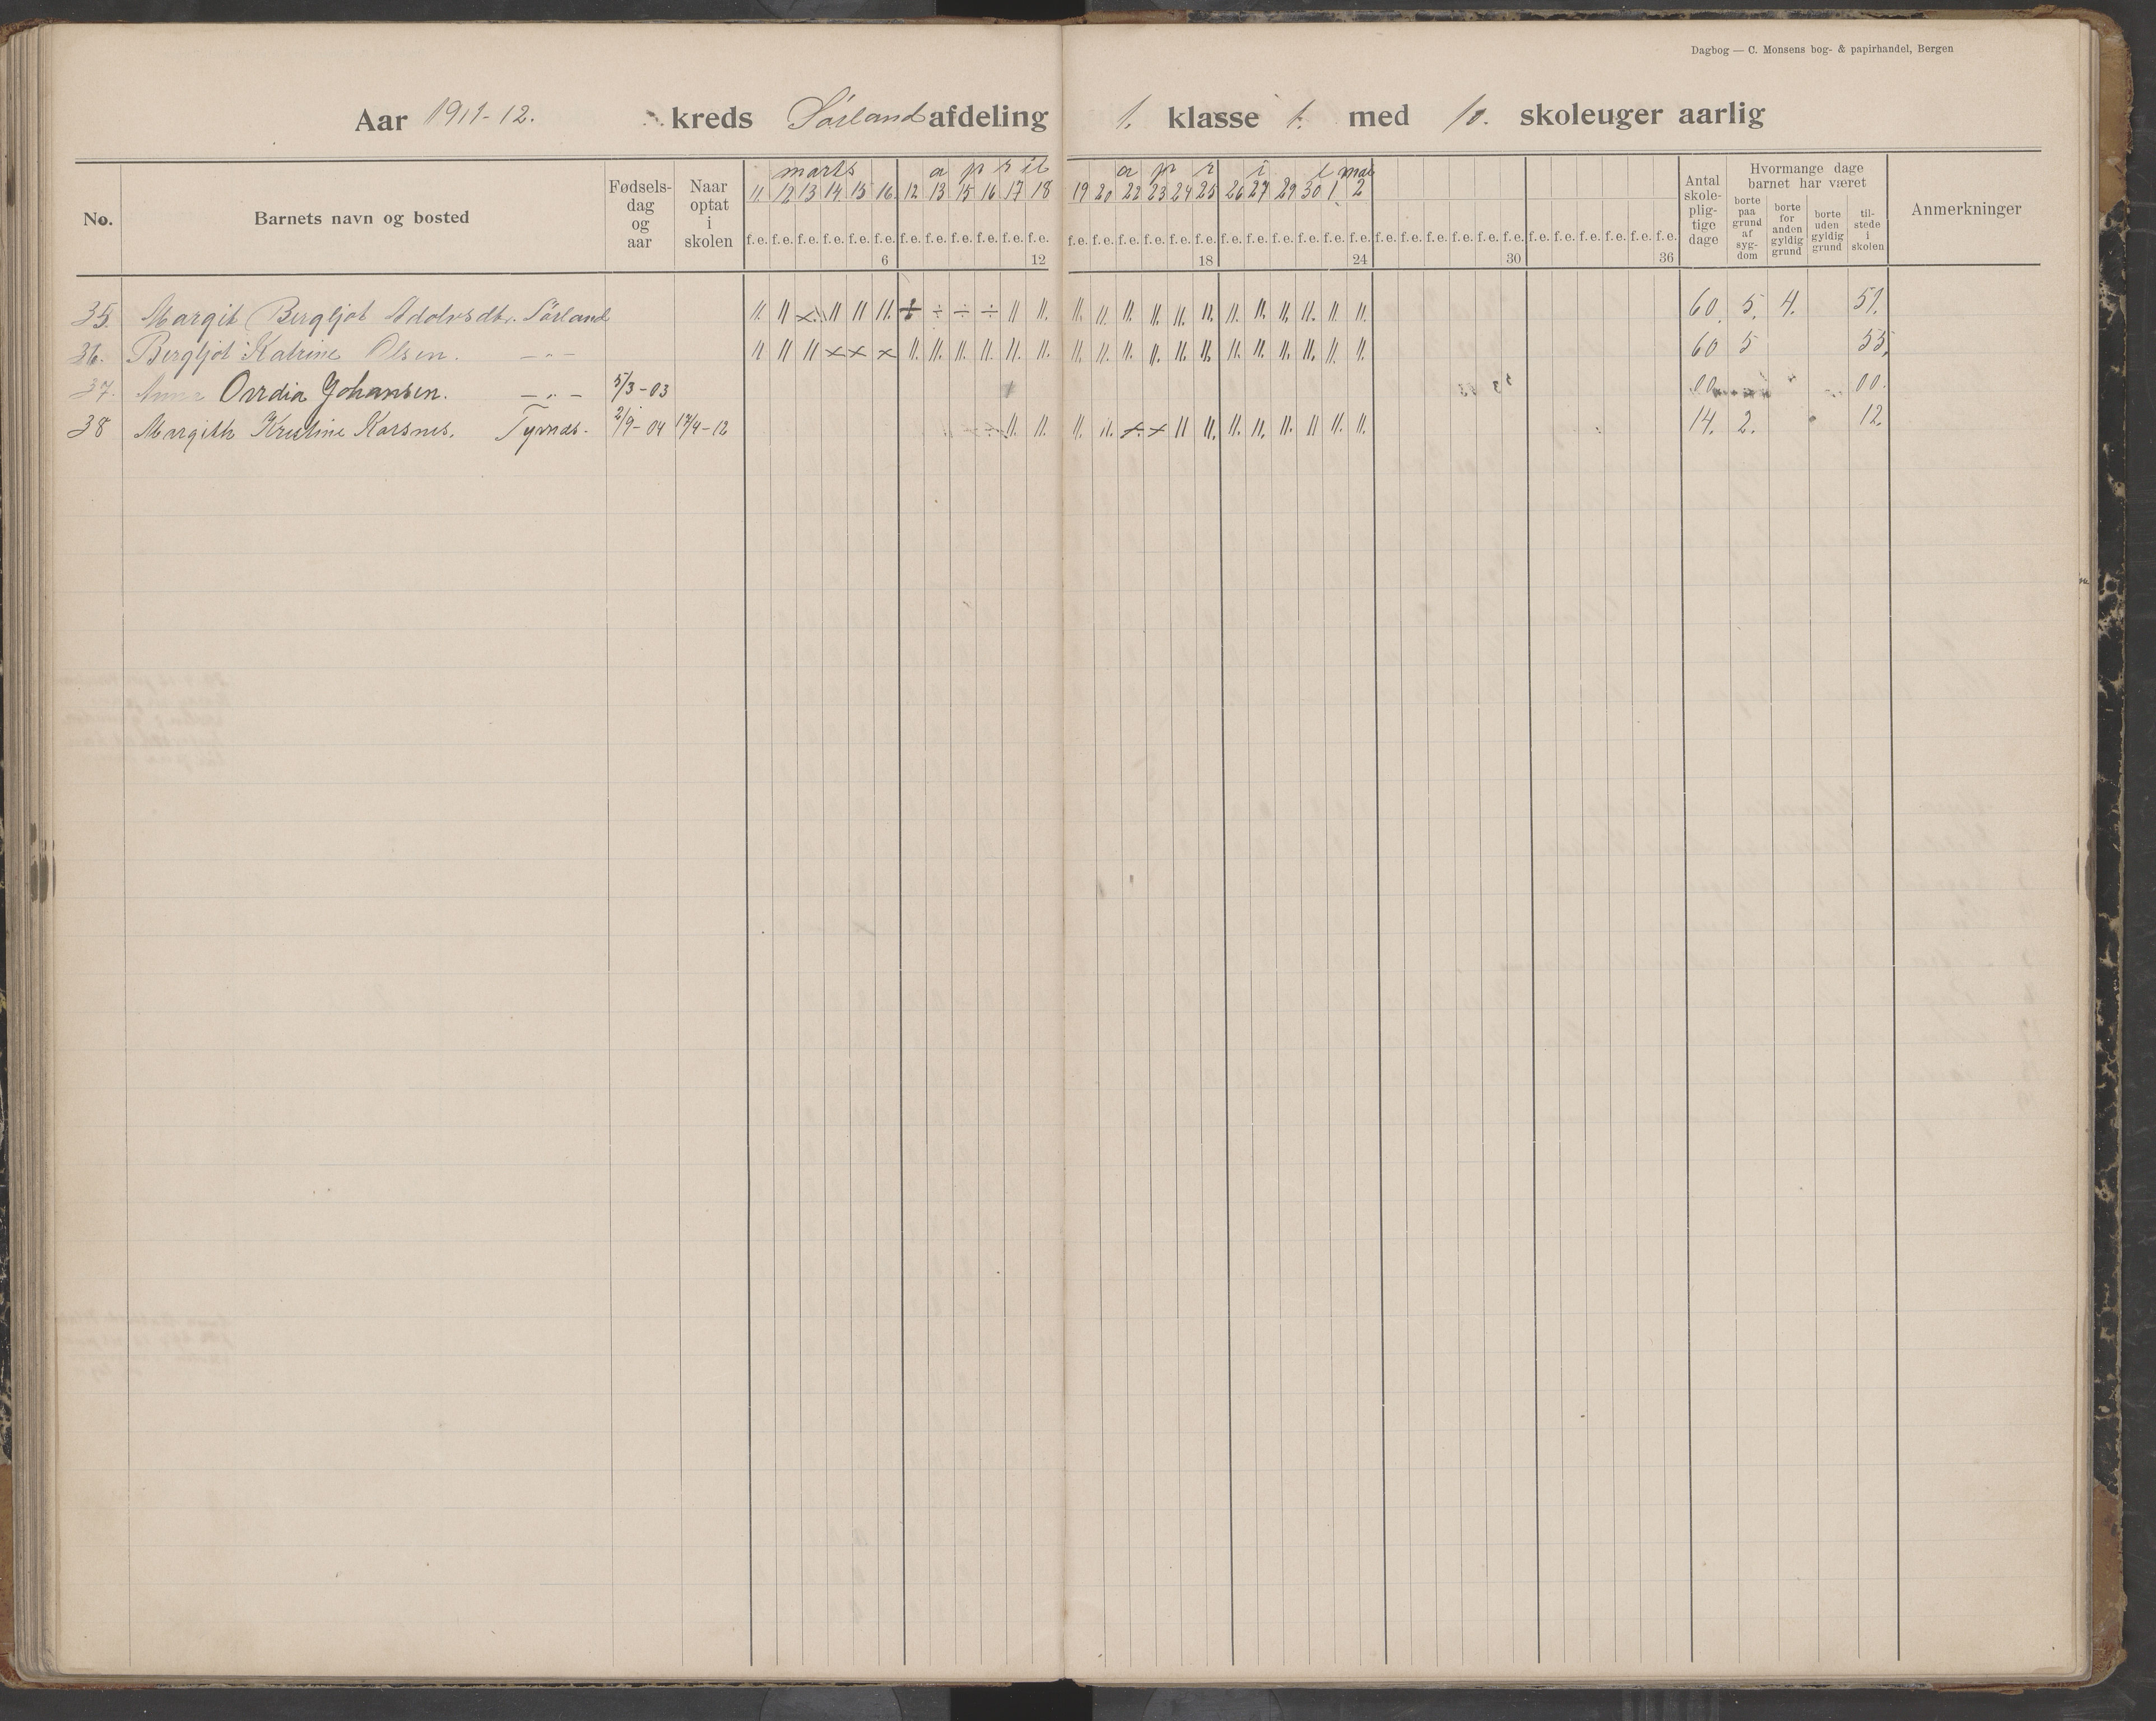 Dagbog — C. Monsens bog- & papirhandel, Bergen
Aar 1911-12. kreds Sørland afdeling 1. klasse 1. med 10. skoleuger aarlig
No. Barnets navn og bosted Fødsels-dag og aar Naar optat i skolen
marts april april mai
11. 12 13 14. 15 16. 12 13. 15 16 17 18 19 20 22 23 24 25 26 27 29 30 1. 2
f.e. f.e. f.e. f.e. f.e. f.e. f.e. f.e. f.e. f.e. f.e. f.e. f.e. f.e. f.e. f.e. f.e. f.e. f.e. f.e. f.e. f.e. f.e. f.e. f.e. f.e. f.e. f.e. f.e. f.e. f.e. f.e. f.e. f.e. f.e. f.e.
6 12 18 24 30 36
Antal skole-plig-tige dage
Hvormange dage barnet har været
borte paa grund af syg-dom
borte for anden gyldig grund
borte uden gyldig grund
til-stede i skolen
Anmerkninger
35. Margit Bergljot Adolvsdtr. Sørland 11. 11 x 11 11 11. ÷ ÷ ÷ ÷ 11 11. 11. 11. 11. 11. 11. 11. 11. 11. 11. 11. 11. 11. 60. 5. 4. 51.
36. Bergljot Katrine Olsen. — " — 11 11 11 x x x 11. 11. 11. 11. 11. 11. 11. 11. 11. 11. 11. 11. 11. 11. 11. 11. 11. 11. 60 5 55.
37. Anna Ovidia Johansen. — " — 5/3-03 00 00.
38 Margith Kristine Korsnes. Tyvnds. 2/9-04 17/4-12 11. 11. 11. 11. x x 11 11. 11. 11. 11. 11. 11 11. 14. 2. 12.